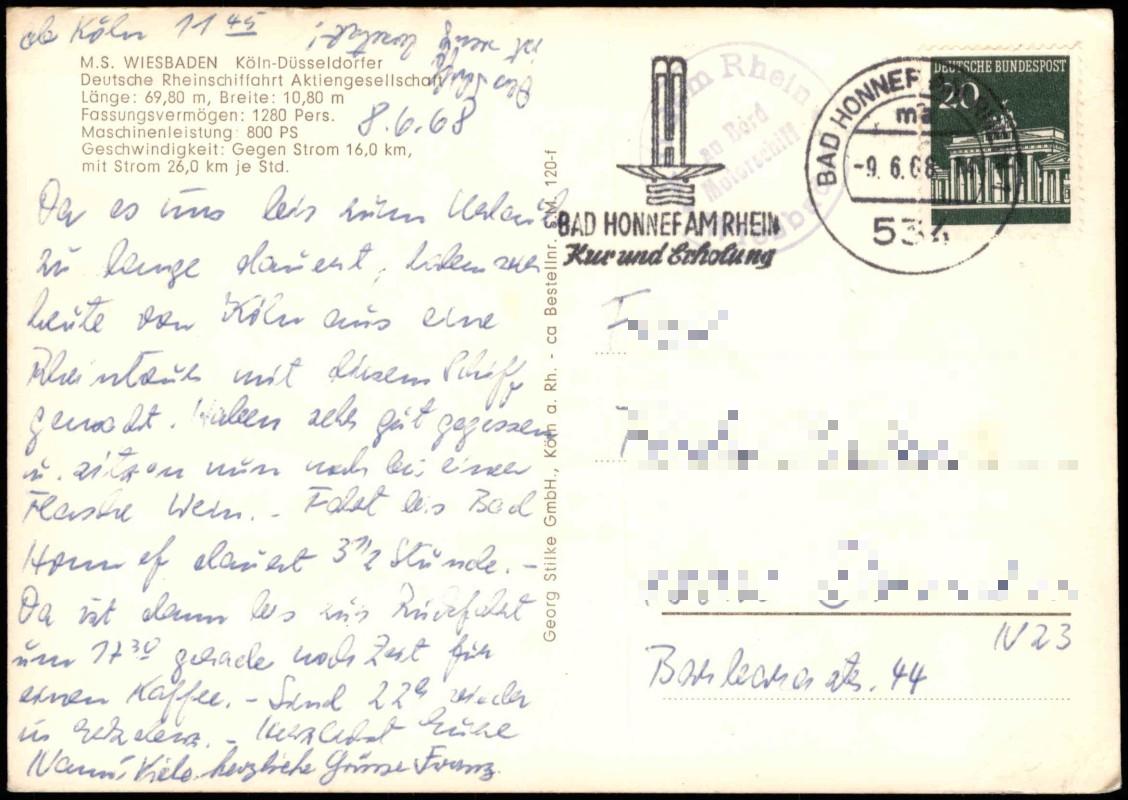 ab Köln 11 45
ist voll besetzt!
Das Schiff
M.S. WIESBADEN Köln-Düsseldorfer
Deutsche Rheinschiffahrt Aktiengesellschaft
Länge: 69,80 m, Breite: 10,80 m
Fassungsvermögen: 1280 Pers.
Maschinenleistung 800 PS
Geschwindigkeit: Gegen Strom 16,0 km,
mit Strom 26,0 km je Std.
8.6.68
Da es uns bis zum Urlaub
zu lange dauert, haben wir
heute von Köln aus eine
Rheintour mit diesem Schiff
gemacht. Haben sehr gut gegessen
u. sitzen nun noch bei einer
Flasche Wein. - Fahrt bis Bad
Honnef dauert 3 1/2 Stunde. -
Da ist dann bis zur Rückfahrt
um 17 30 gerade noch Zeit für
einen Kaffee. - Sind 22 h wieder
in
Nanni. Viele herzliche Grüsse Franz.
Georg Stilke GmbH., Köln a. Rh. - ca Bestellnr. S.M. 120-f
BAD HONNEF AM RHEIN
Kur und Erholung
am Rhein
zu Bord
Motorschiff
BAD HONNEF
-9.6.68
534
DEUTSCHE BUNDESPOST
20
IV 23
Barbarastr. 44